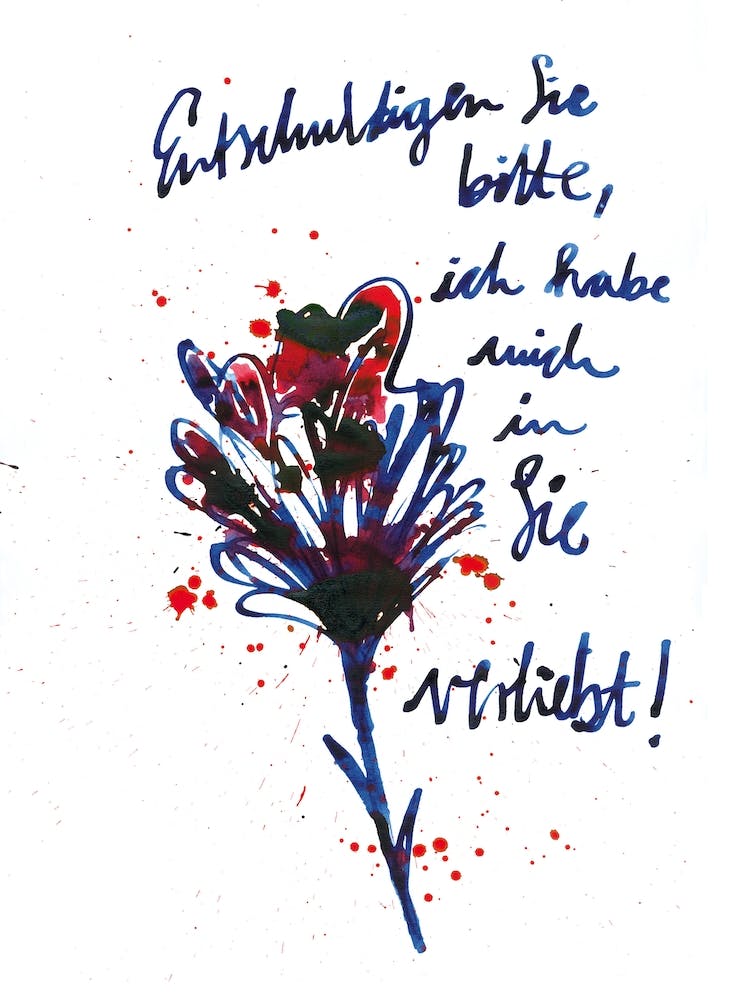 Entschuldigen Sie
bitte,
ich habe
mich
in
Sie
verliebt!